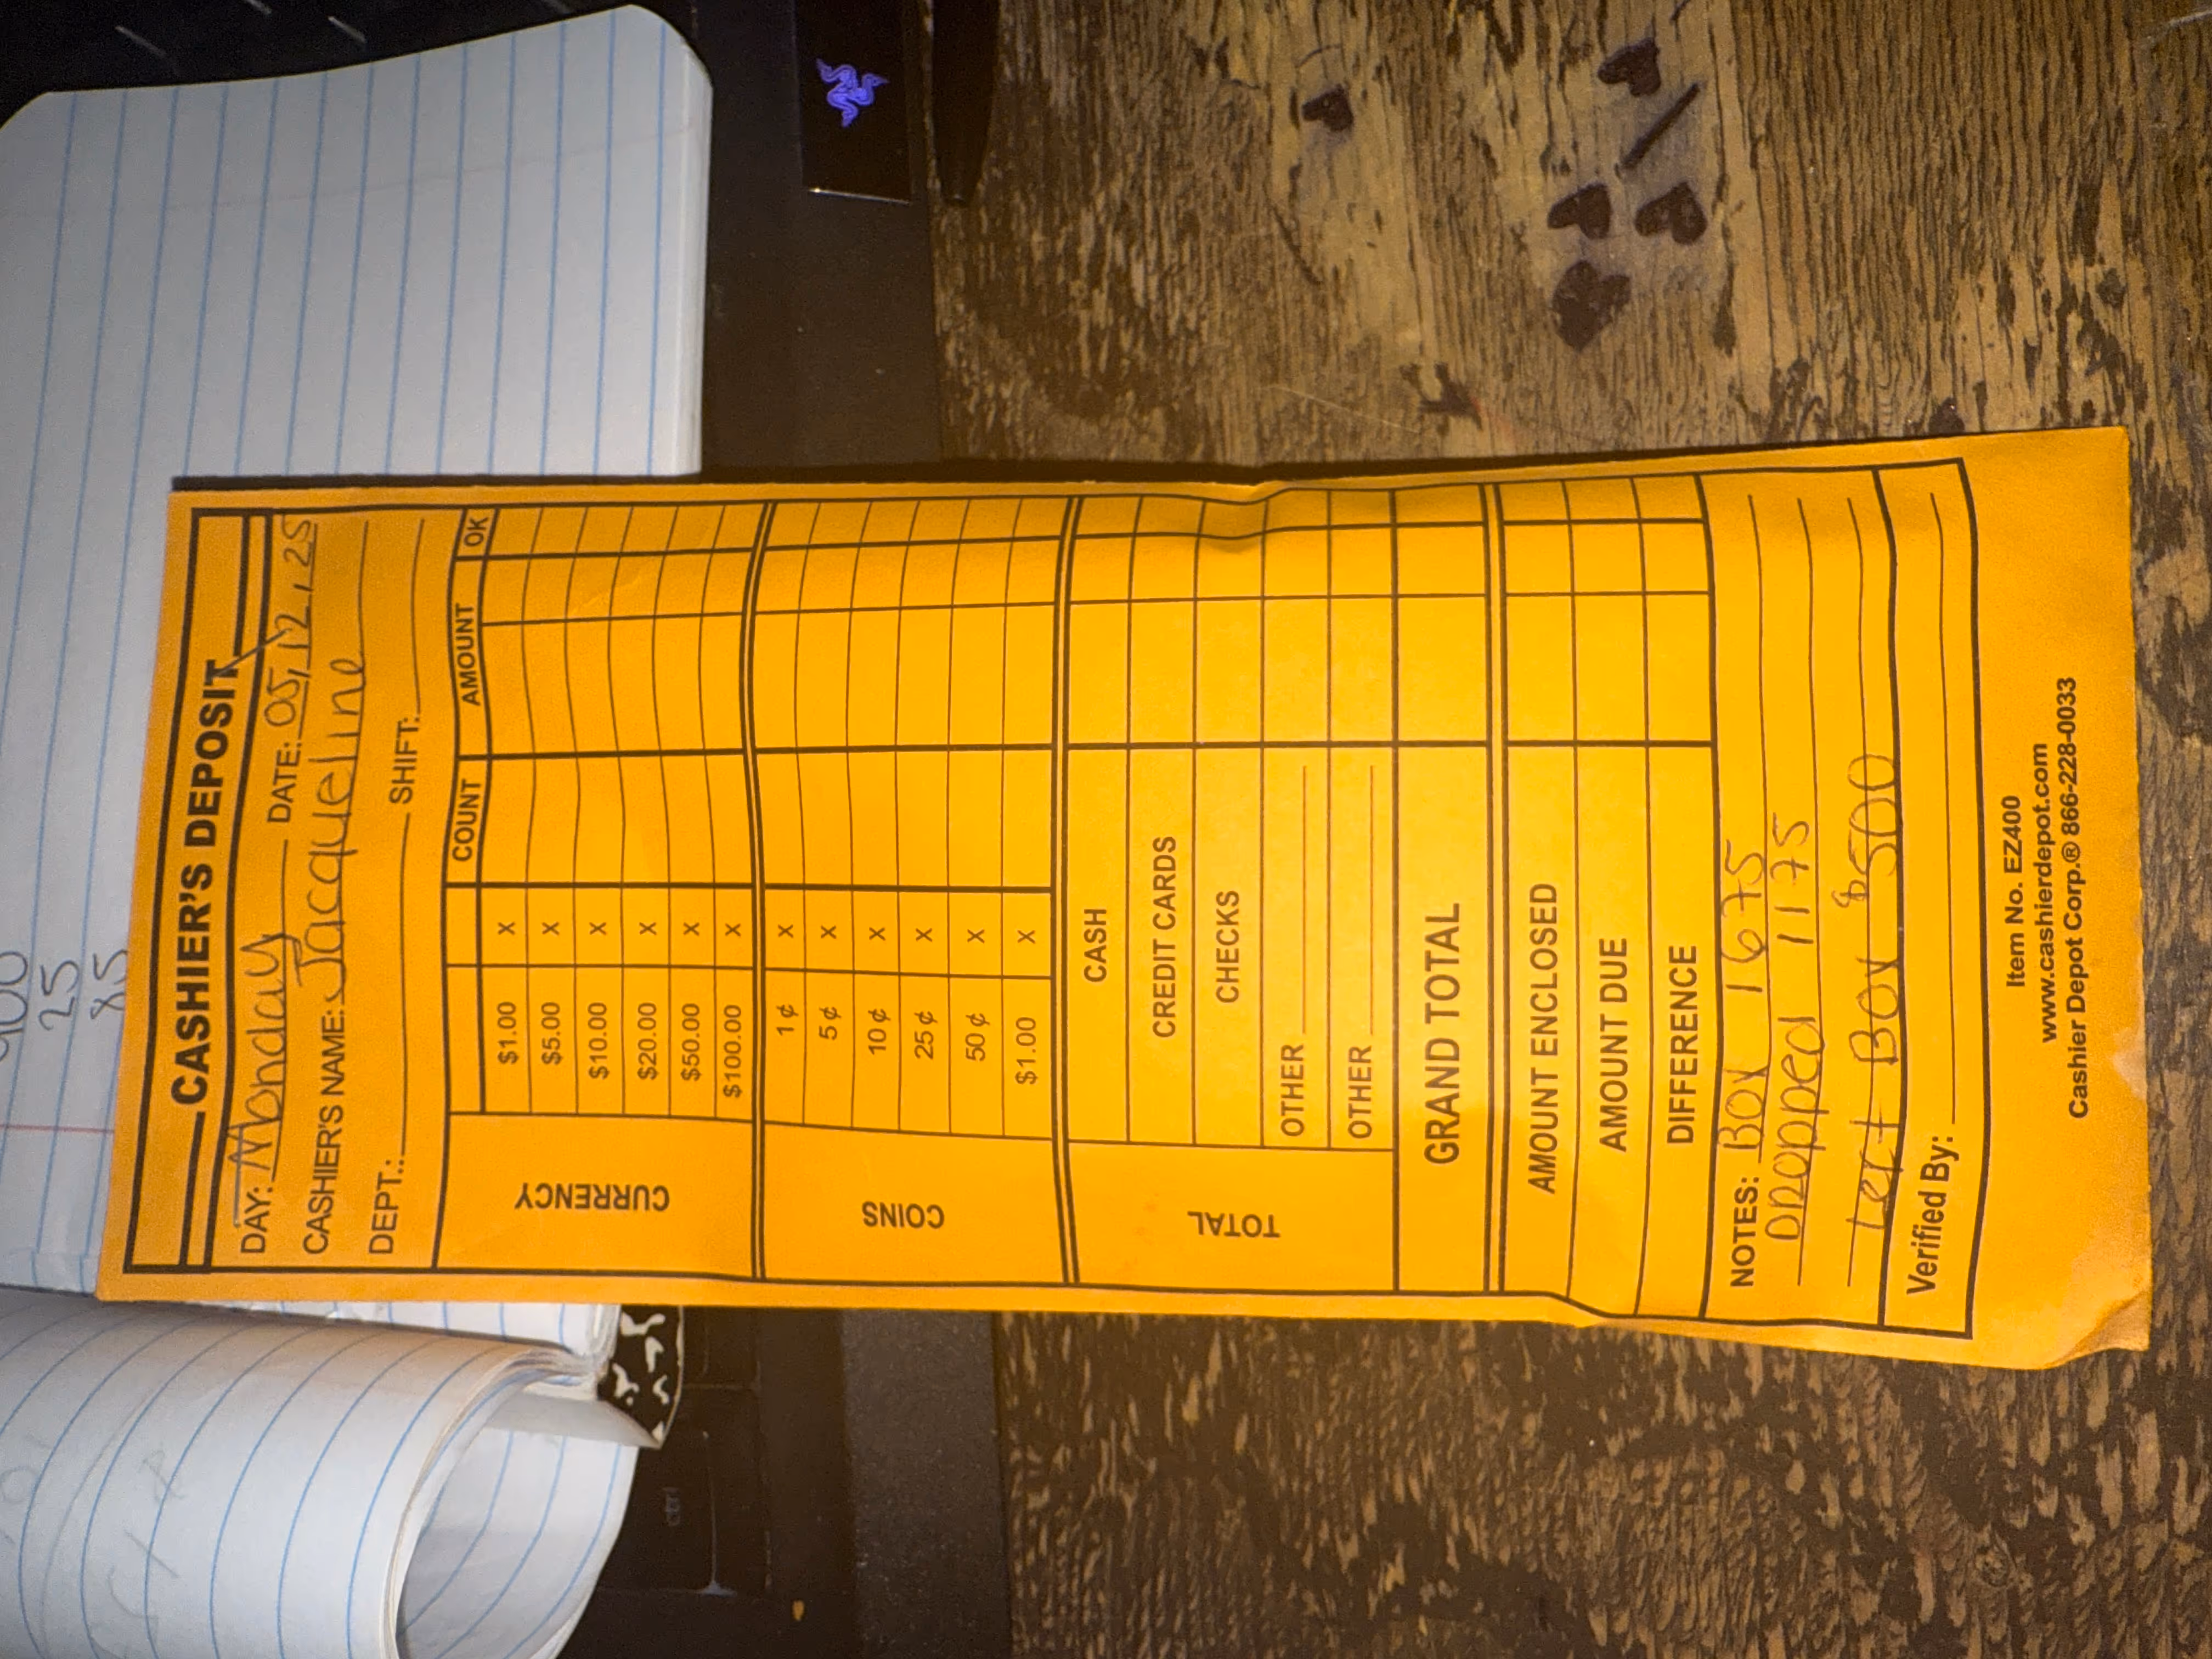 900
25
x5
CASHIER'S DEPOSIT
DAY: Monday DATE: 05, 12, 25
CASHIER'S NAME: Jacqueline
DEPT.: SHIFT:
COUNT AMOUNT OK
CURRENCY
$1.00 X
$5.00 X
$10.00 X
$20.00 X
$50.00 X
$100.00 X
COINS
1¢ X
5¢ X
10¢ X
25¢ X
50¢ X
$1.00 X
TOTAL
CASH
CREDIT CARDS
CHECKS
OTHER
OTHER
GRAND TOTAL
AMOUNT ENCLOSED
AMOUNT DUE
DIFFERENCE
NOTES: Box 1675
Dropped 1175
left Box $500
Verified By:
Item No. EZ400
www.cashierdepot.com
Cashier Depot Corp.® 866-228-0033
ctrl